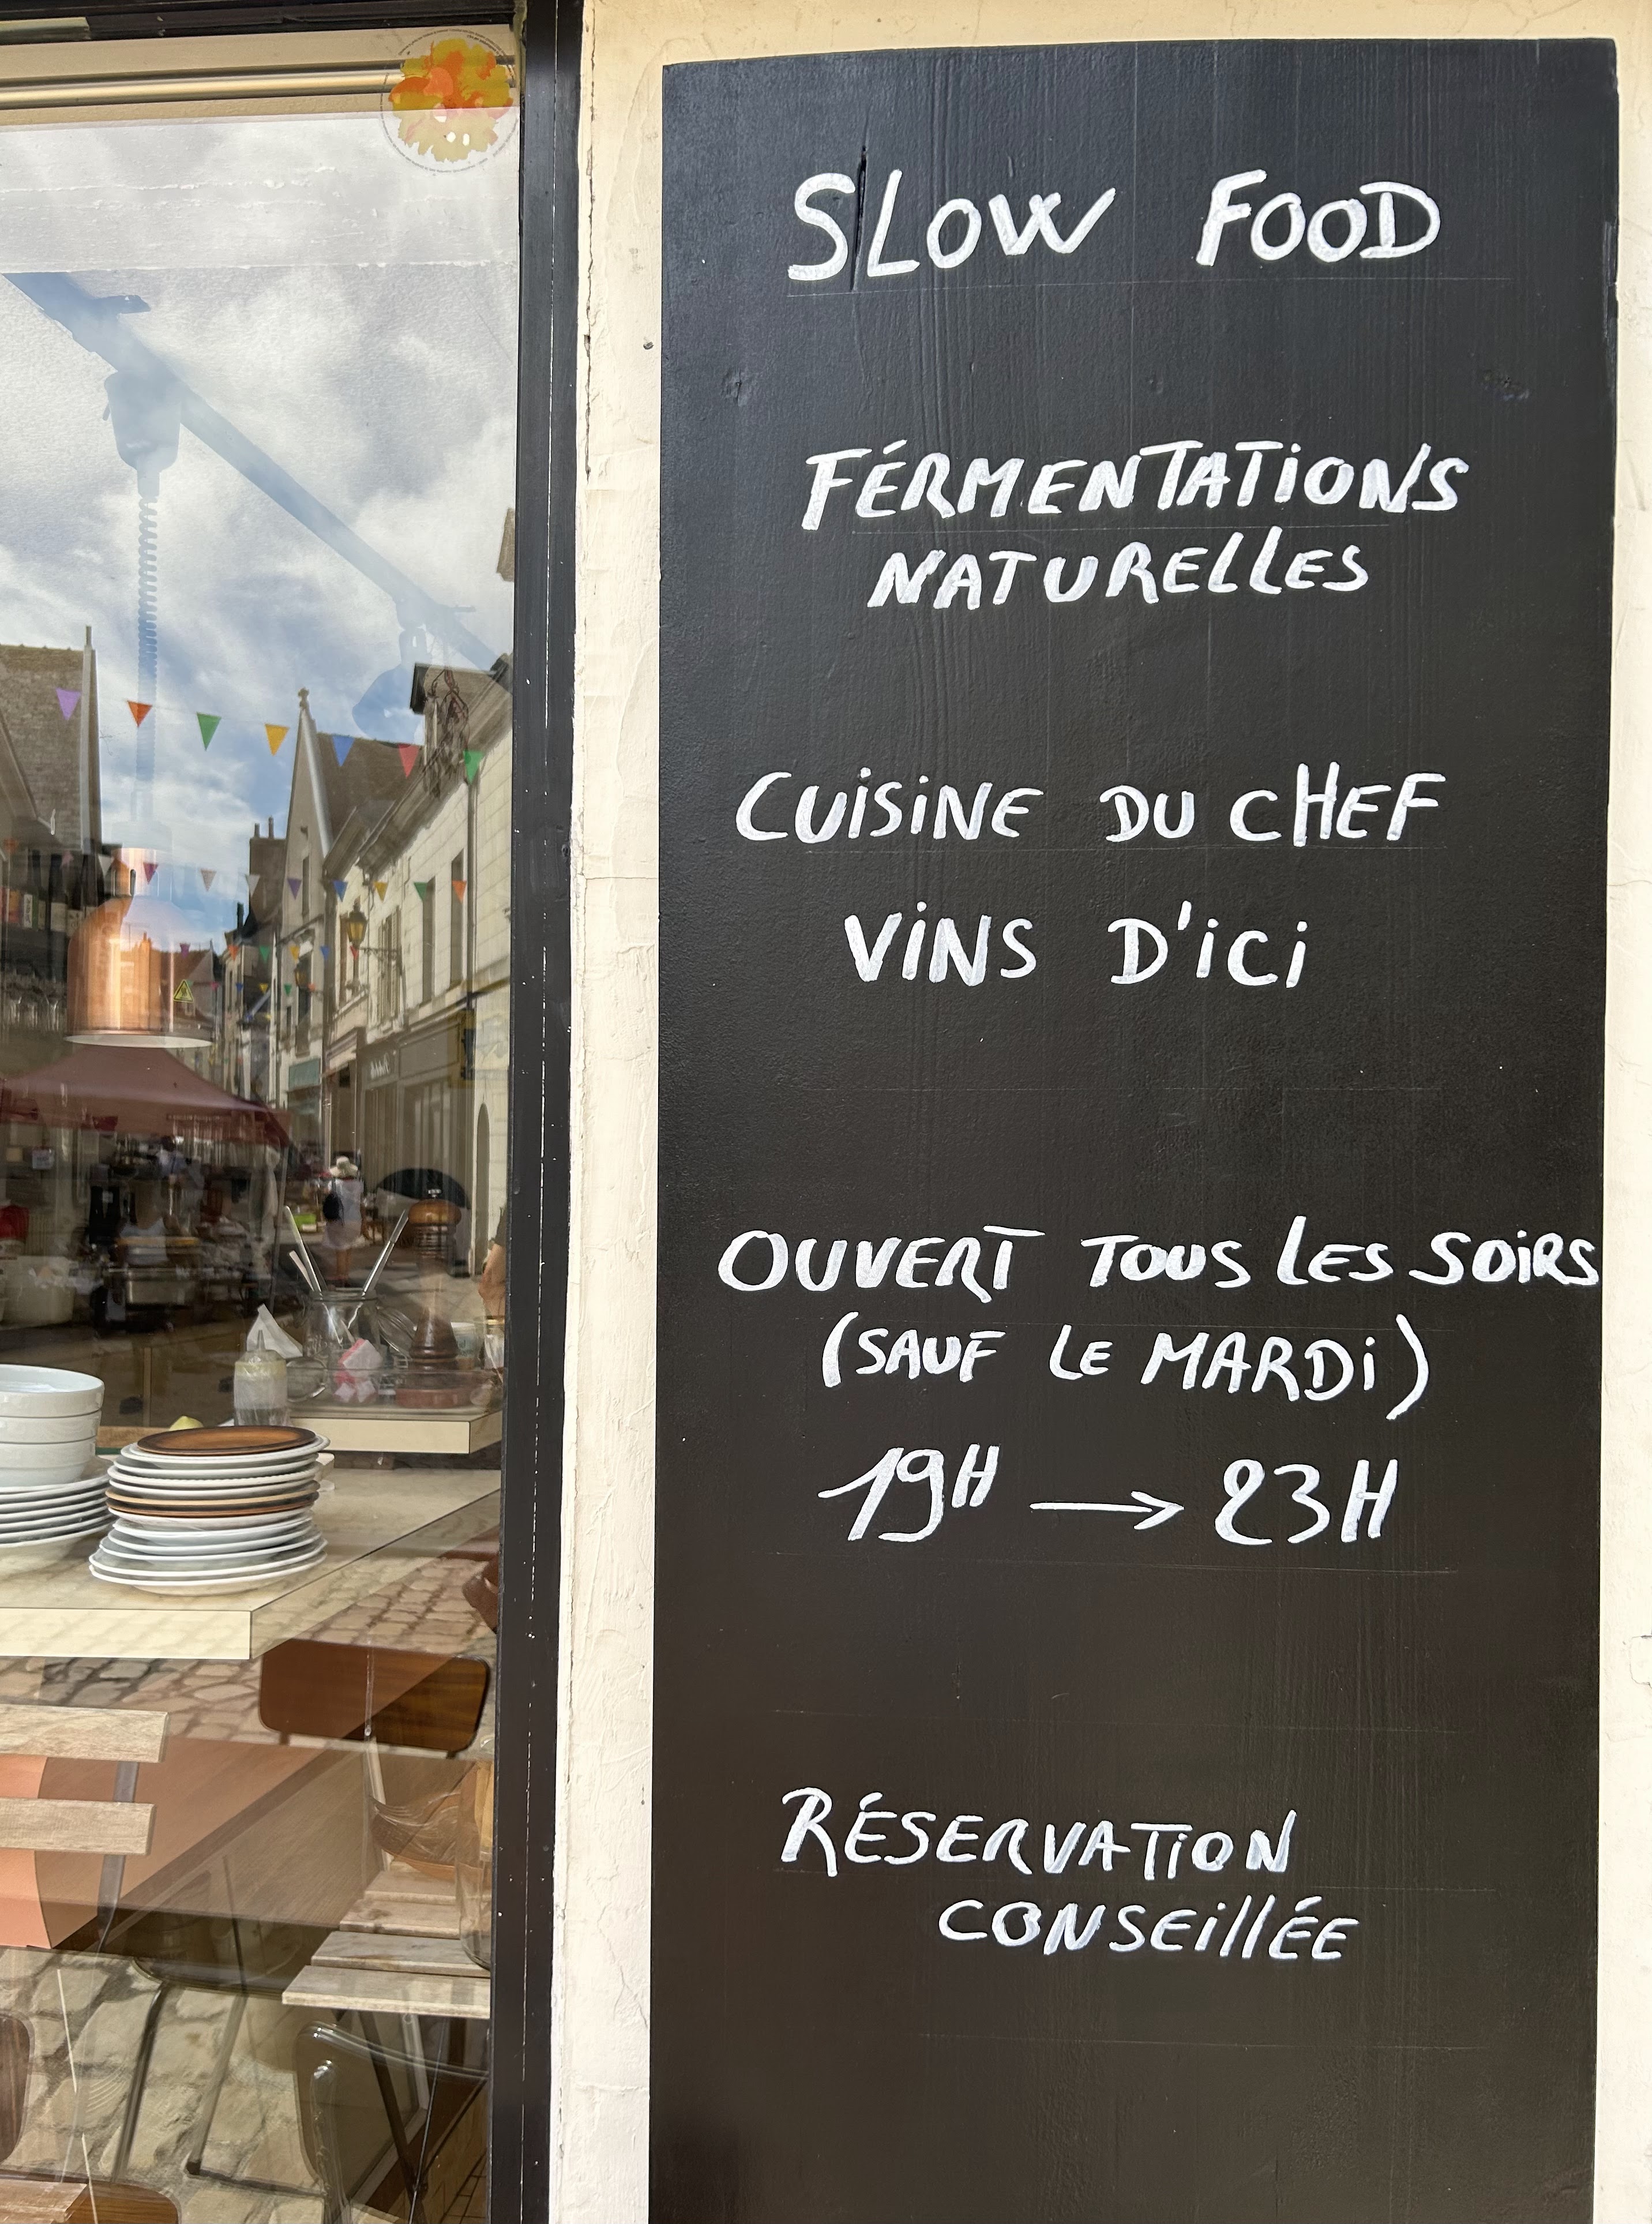 SLOW FOOD
FÉRMENTATIONS
NATURELLES
CUISINE DU CHEF
VINS D'ICI
OUVERT TOUS LES SOIRS
(SAUF LE MARDI)
19H → 23H
RÉSERVATION
CONSEILLÉE